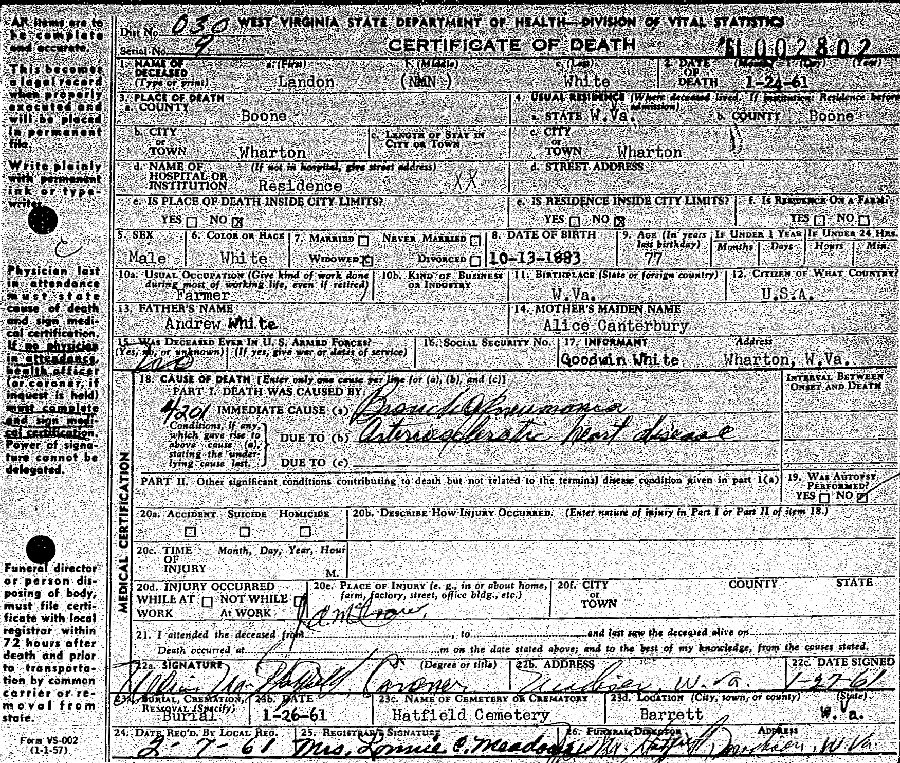 All items are to be complete and accurate.
This becomes a legal record when properly executed and will be placed in permanent file.
Write plainly with permanent ink or typewriter.
Physician last in attendance must state cause of death and sign medical certification. If no physician in attendance, health officer (or coroner, if inquest is held) must complete and sign medical certification. Power of signature cannot be delegated.
Funeral director or person disposing of body, must file certificate with local registrar within 72 hours after death and prior to transportation by common carrier or removal from state.
Form VS-002
(1-1-57)
WEST VIRGINIA STATE DEPARTMENT OF HEALTH—DIVISION OF VITAL STATISTICS
Dist No. 030
Serial No. 9
CERTIFICATE OF DEATH
61 002802
1. NAME OF DECEASED (Type or print) a. (First) Landon b. (Middle) (NMN) c. (Last) White
2. DATE OF DEATH (Month) (Day) (Year) 1-24-61
3. PLACE OF DEATH
a. COUNTY Boone
4. USUAL RESIDENCE (Where deceased lived. If institution: Residence before admission)
a. STATE W.Va. b. COUNTY Boone
b. CITY or TOWN Wharton
c. LENGTH OF STAY IN CITY OR TOWN
c. CITY or TOWN Wharton
d. NAME OF HOSPITAL OR INSTITUTION (If not in hospital, give street address) Residence XX
d. STREET ADDRESS
e. IS PLACE OF DEATH INSIDE CITY LIMITS? YES NO
e. IS RESIDENCE INSIDE CITY LIMITS? YES NO
f. IS RESIDENCE ON A FARM? YES NO
5. SEX Male
6. COLOR OR RACE White
7. MARRIED NEVER MARRIED WIDOWED DIVORCED
8. DATE OF BIRTH 10-13-1883
9. AGE (In years last birthday) 77
IF UNDER 1 YEAR Months Days
IF UNDER 24 HRS. Hours Min.
10a. USUAL OCCUPATION (Give kind of work done during most of working life, even if retired) Farmer
10b. KIND OF BUSINESS OR INDUSTRY
11. BIRTHPLACE (State or foreign country) W.Va.
12. CITIZEN OF WHAT COUNTRY? U.S.A.
13. FATHER'S NAME Andrew White
14. MOTHER'S MAIDEN NAME Alice Canterbury
15. WAS DECEASED EVER IN U. S. ARMED FORCES? (Yes, no, or unknown) (If yes, give war or dates of service) no
16. SOCIAL SECURITY NO.
17. INFORMANT Goodwin White Address Wharton, W.Va.
MEDICAL CERTIFICATION
18. CAUSE OF DEATH [Enter only one cause per line for (a), (b), and (c)]
INTERVAL BETWEEN ONSET AND DEATH
PART I. DEATH WAS CAUSED BY:
4201 IMMEDIATE CAUSE (a) Broncho Pneumonia
Conditions, if any, which gave rise to above cause (a), stating the underlying cause last.
DUE TO (b) Arteriosclerotic heart disease
DUE TO (c)
PART II. Other significant conditions contributing to death but not related to the terminal disease condition given in part 1(a)
19. WAS AUTOPSY PERFORMED? YES NO
20a. ACCIDENT SUICIDE HOMICIDE
20b. DESCRIBE HOW INJURY OCCURRED. (Enter nature of injury in Part I or Part II of item 18.)
20c. TIME OF INJURY Month, Day, Year, Hour M.
20d. INJURY OCCURRED WHILE AT WORK NOT WHILE AT WORK
20e. PLACE OF INJURY (e. g., in or about home, farm, factory, street, office bldg., etc.)
20f. CITY or TOWN COUNTY STATE
21. I attended the deceased from, to and last saw the deceased alive on
Death occurred at m on the date stated above; and to the best of my knowledge, from the causes stated.
22a. SIGNATURE (Degree or title) Coroner
22b. ADDRESS W. Va.
22c. DATE SIGNED 1-27-61
23a. BURIAL, CREMATION, REMOVAL (Specify) Burial
23b. DATE 1-26-61
23c. NAME OF CEMETERY OR CREMATORY Hatfield Cemetery
23d. LOCATION (City, town, or county) (State) Barrett W.Va.
24. DATE REC'D. BY LOCAL REG. 2-7-61
25. REGISTRAR'S SIGNATURE Mrs. Lonnie C. Meadows
26. FUNERAL DIRECTOR ADDRESS W.Va